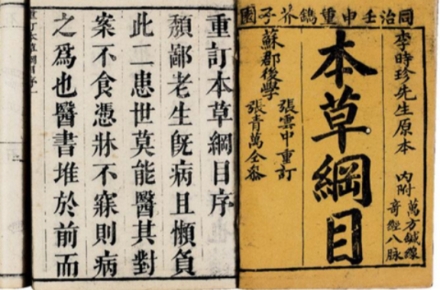 同治壬申重鐫芥子園
李時珍先生原本
內附萬方鍼線
奇經八脉
本草綱目
張雲中重訂
蘇郡後學
張青萬仝參
重訂本草綱目序
頹鄙老生旣病且懶負
此二患世莫能醫其對
案不食憑牀不寐則病
之爲也醫書堆於前而